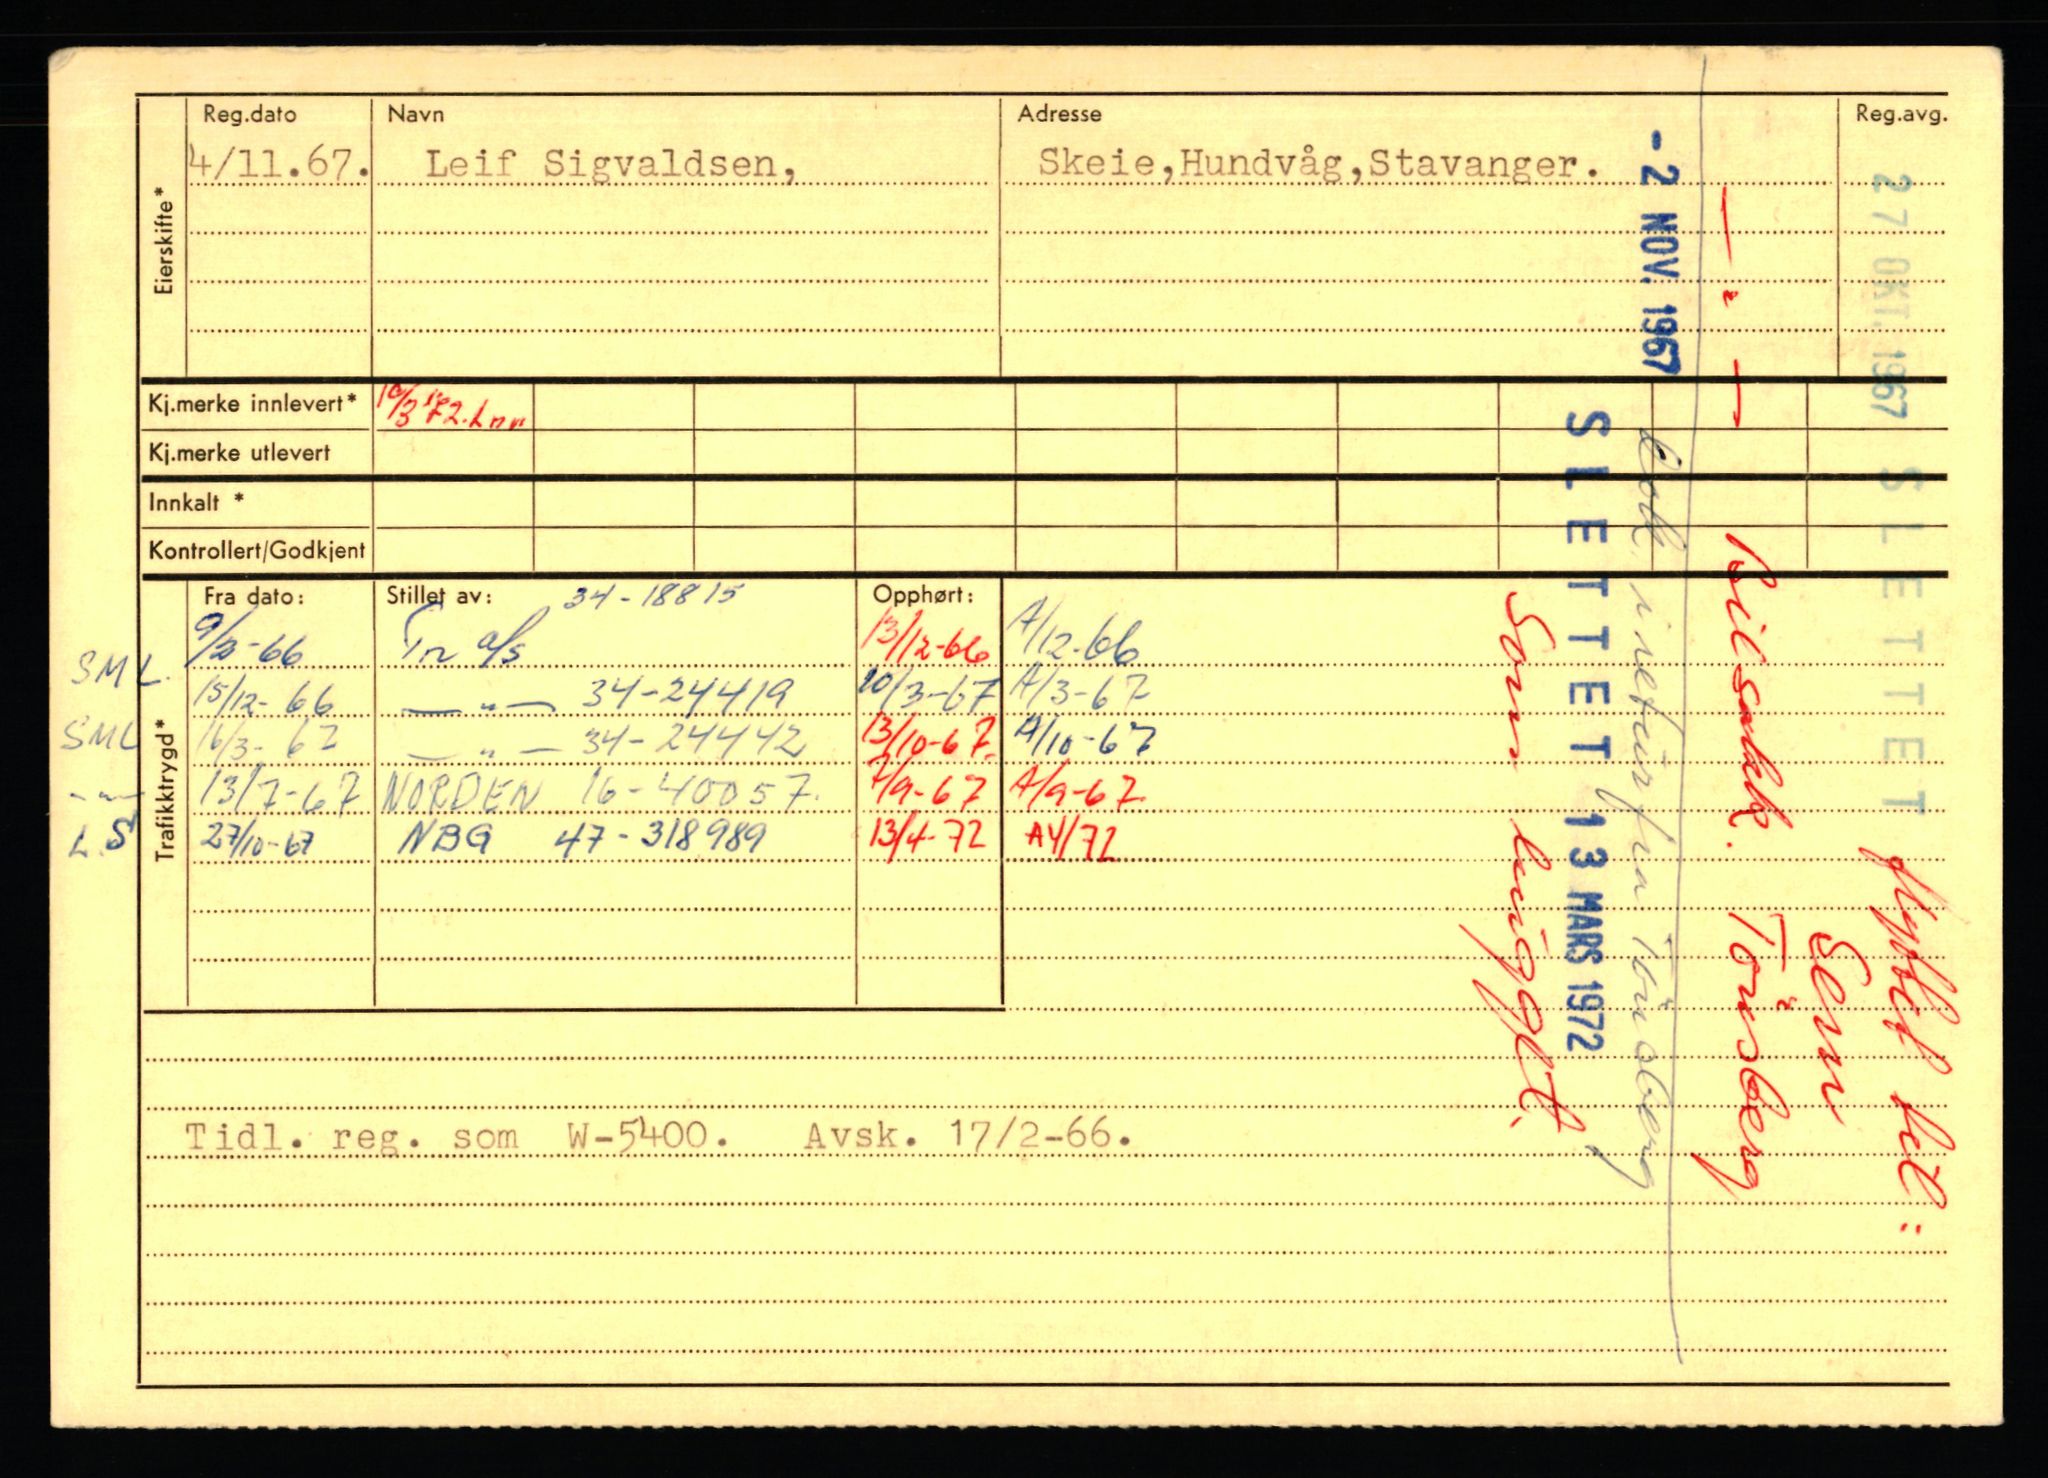 Reg.dato Navn Adresse Reg.avg.
4/11.67. Leif Sigvaldsen, Skeie,Hundvåg,Stavanger.
Eierskifte*
Kj.merke innlevert* 10/3 172. Lnr
Kj.merke utlevert
Innkalt *
Kontrollert/Godkjent
Trafikktrygd*
Fra dato: Stillet av: 34-18815 Opphørt:
-66 a/s 13/12-66 A/12-66
SML. 15/12-66 — " — 34-24419 10/3-67 A/3-67
SML 16/3-67 — " — 34-24442 13/10-67. A/10-67
- " - 13/7-67 NORDEN 16-40057. 7/9-67 A/9-67.
L.S 27/10-67 NBG 47-318989 13/4-72 A4/72
Tidl. reg. som W-5400. Avsk. 17/2-66.
27 OKT. 1967 SLETTET
flyttet til:
Sem
— " — bilsakk. Tönsberg
-2 NOV. 1967
i retur fra Tönsberg
SLETTET 13 MARS 1972
Som hugget.